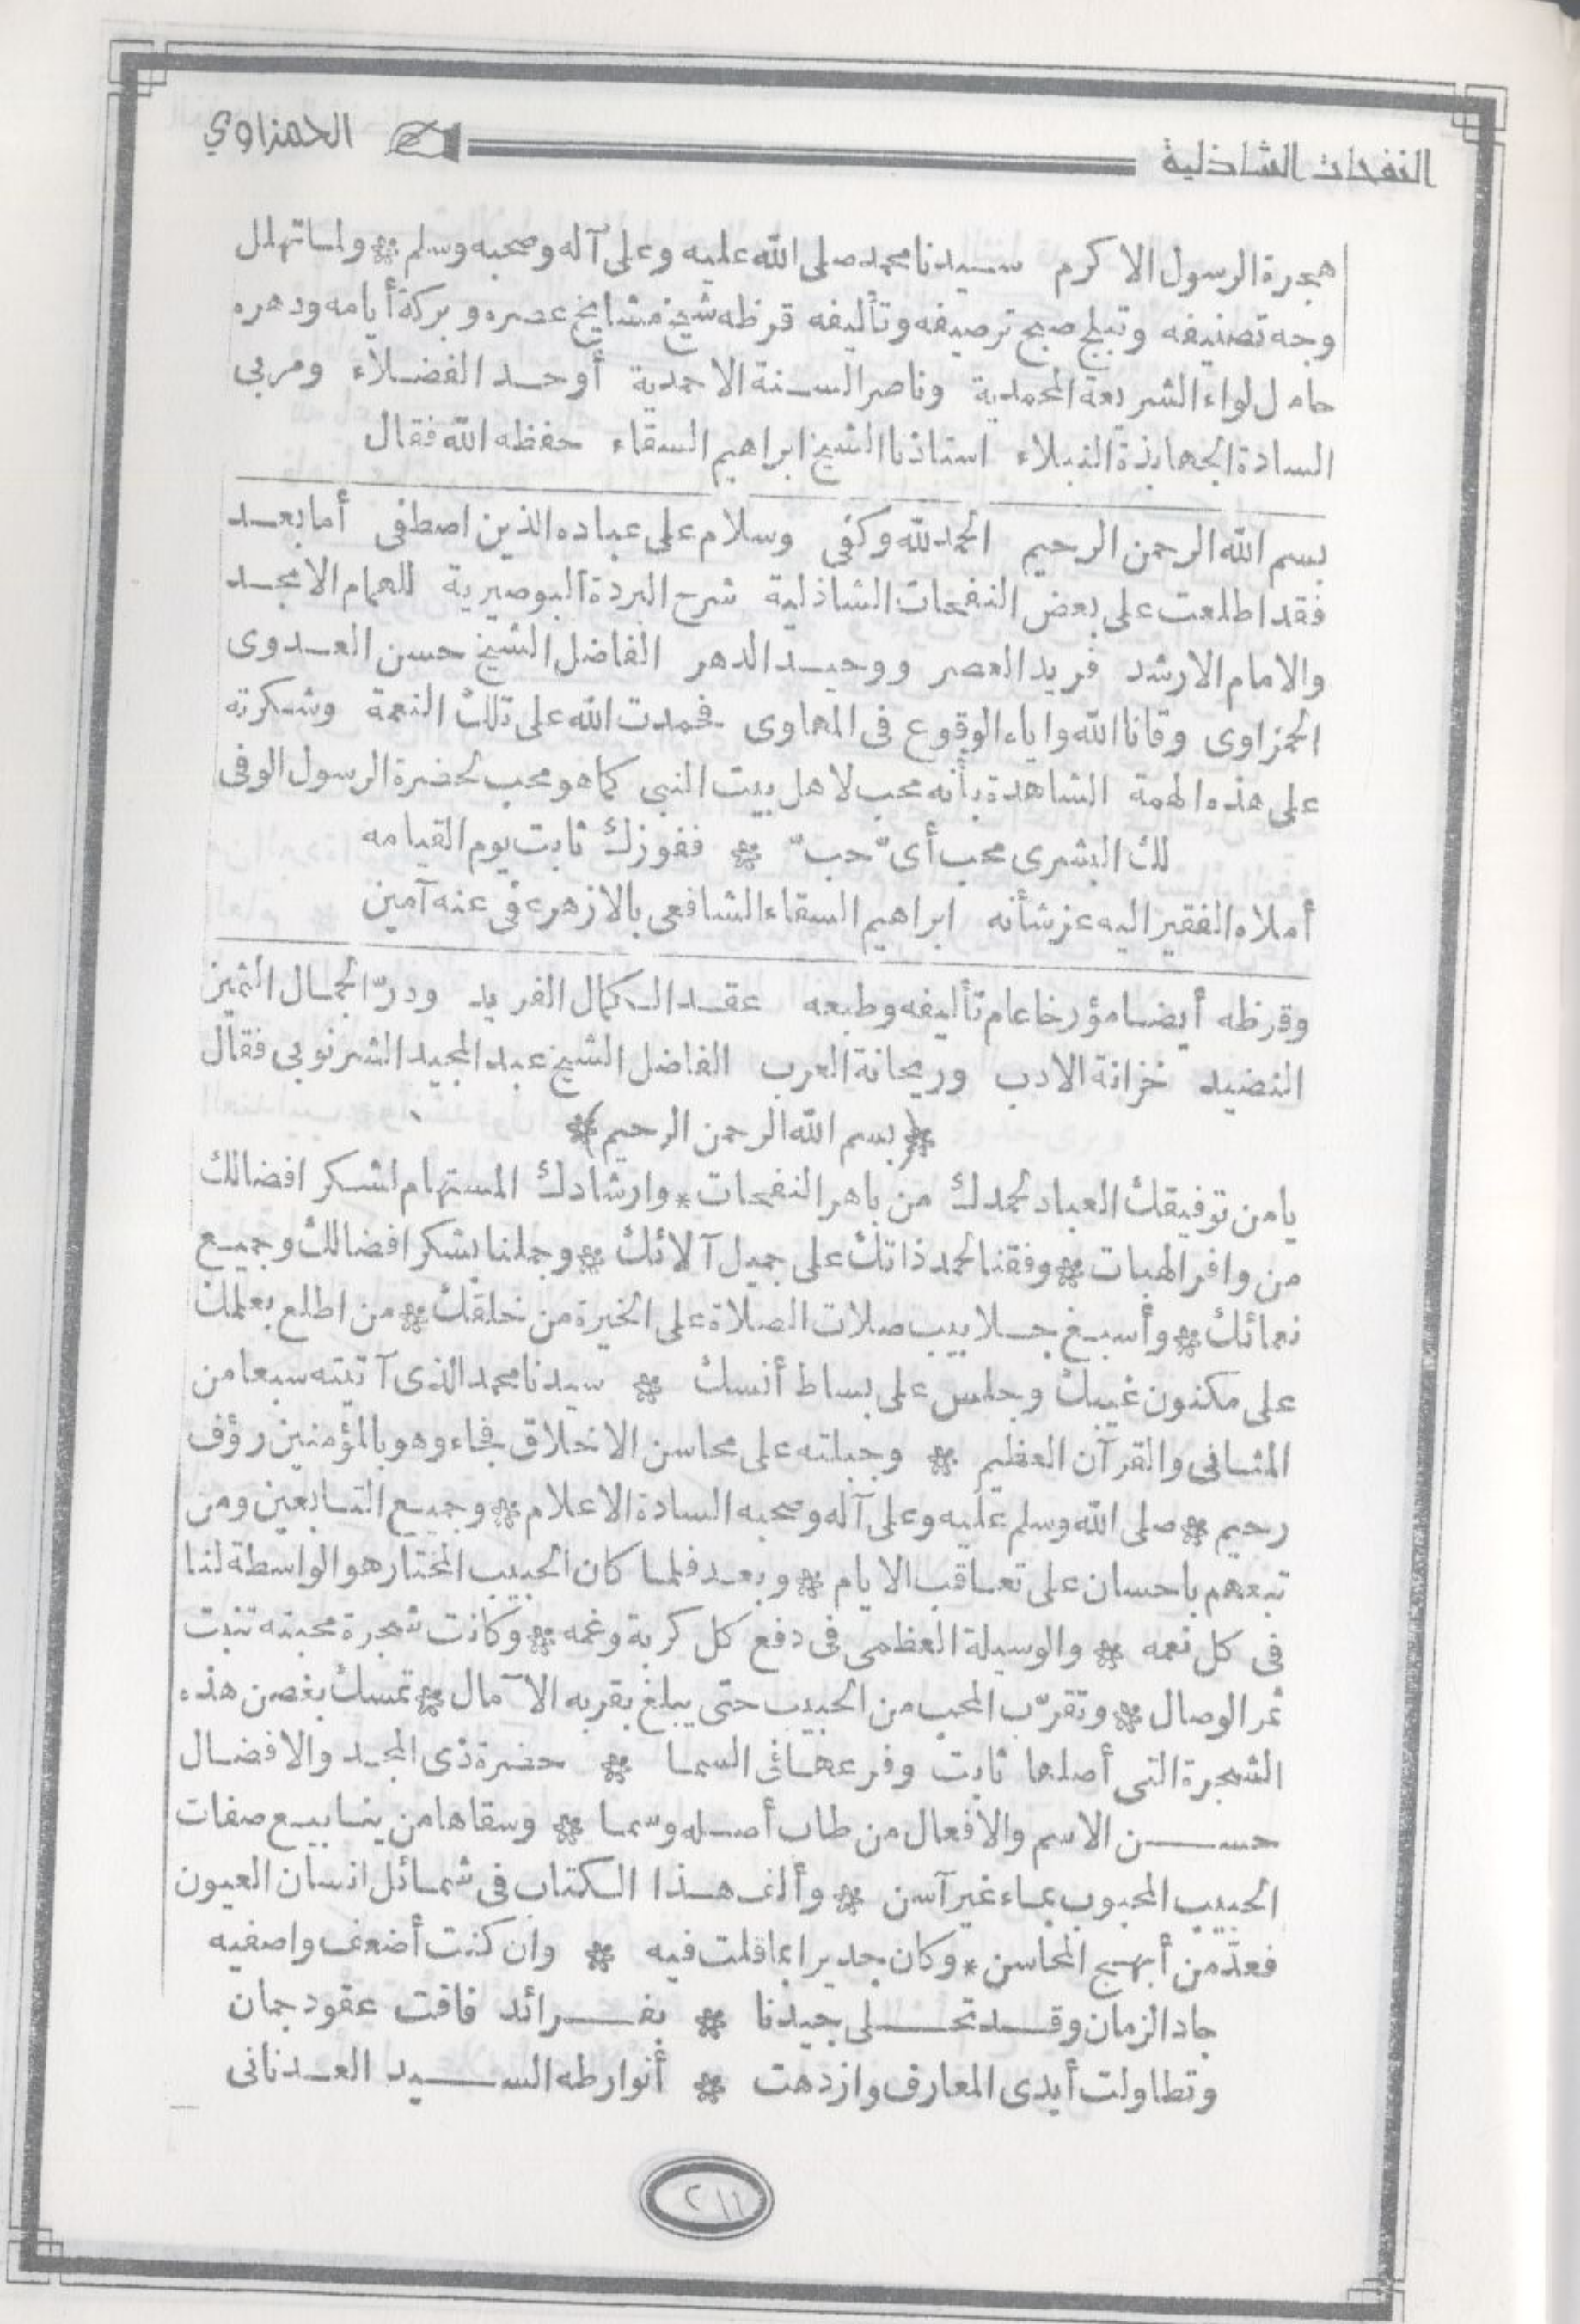 النفحات الشاذلية
الحمزاوي
هجرة الرسول الاكرم سيدنا محمد صلى الله عليه وعلى آله وصحبه وسلم * ولما تهلل
وجه تصنيفه وتبلج صبح ترصيفه وتأليفه قرظه شيخ مشايخ عصره و بركة أيامه ودهره
حامل لواء الشريعة المحمدية وناصر السنة الاحمدية أوحد الفضلاء ومربى
السادة الجهابذة النبلاء استاذنا الشيخ ابراهيم السقاء حفظه الله فقال
بسم الله الرحمن الرحيم الحمد لله وكفى وسلام على عباده الذين اصطفى أما بعد
فقد اطلعت على بعض النفحات الشاذلية شرح البردة البوصيرية للهمام الامجد
والامام الارشد فريد العصر ووحيد الدهر الفاضل الشيخ حسن العدوى
الحمزاوى وقانا الله واياه الوقوع فى المهاوى فحمدت الله على تلك النعمة وشكرته
على هذه الهمة الشاهدة بأنه محب لاهل بيت النبى كما هو محب لحضرة الرسول الوفى
لك البشرى محب أىّ حبّ * ففوزك ثابت يوم القيامه
أملاه الفقير اليه عز شأنه ابراهيم السقاء الشافعى بالازهر عفى عنه آمين
وقرظه أيضا مؤرخا عام تأليفه وطبعه عقد الكمال الفريد ودرّ الجمال الثمين
النضيد خزانة الادب وريحانة العرب الفاضل الشيخ عبد المجيد الشرنوبى فقال
* (بسم الله الرحمن الرحيم) *
يا من توفيقك العباد لحمدك من باهر النفحات * وارشادك المستهام لشكر افضالك
من وافر الهبات * وفقنا لحمد ذاتك على جميل آلائك * وجملنا بشكر افضالك وجميع
نعمائك * وأسبغ جلابيب صلات الصلاة على الخيرة من خلقك * من اطلع بعلمك
على مكنون غيبك وجلس على بساط أنسك * سيدنا محمد الذى آتيته سبعا من
المثانى والقرآن العظيم * وجبلته على محاسن الاخلاق فجاء وهو بالمؤمنين رؤف
رحيم * صلى الله وسلم عليه وعلى آله وصحبه السادة الاعلام * وجميع التابعين ومن
تبعهم باحسان على تعاقب الايام * وبعد فلما كان الحبيب المختار هو الواسطة لنا
فى كل نعمه * والوسيلة العظمى فى دفع كل كربة وغمه * وكانت شجرة محبته تنبت
ثمر الوصال * وتقرّب المحب من الحبيب حتى يبلغ بقربه الآمال * تمسك بغصن هذه
الشجرة التى أصلها ثابت وفرعها فى السما * حضرة ذى المجد والافضال
حسن الاسم والافعال من طاب أصله وسما * وسقاها من ينابيع صفات
الحبيب المحبوب بماء غير آسن * وألف هذا الكتاب فى شمائل انسان العيون
فعدّ من أبهج المحاسن * وكان جديرا بما قلت فيه * وان كنت أضعف واصفيه
جاد الزمان وقد تحلى جيدنا * بفرائد فاقت عقود جمان
وتطاولت أيدى المعارف وازدهت * أنوار طه السيد العدنانى
٢١١